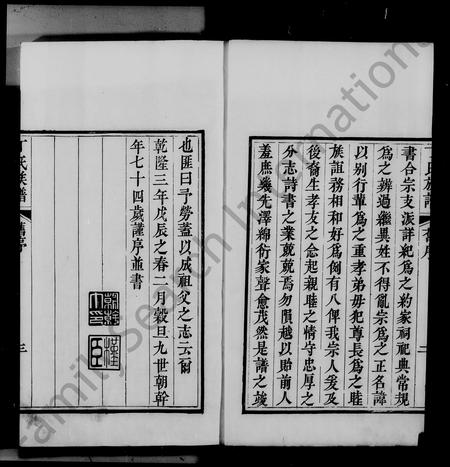 丁氏族譜 舊序 二
書合宗支派詳紀爲之約家祠祀典常規
爲之辨過繼異姓不得亂宗爲之正名諱
以別行輩爲之重孝弟毋犯尊長爲之睦
族誼務相和好爲例有八俾我宗人爰及
後裔生孝友之念起親睦之情守忠厚之
分志詩書之業兢兢焉勿隕越以貽前人
羞庶幾先澤綿衍家聲愈茂然是譜之竣
也匪曰予勞蓋以成祖父之志云爾
乾隆三年戊辰之春二月穀旦九世朝幹
年七十四歲謹序並書
丁氏族譜 舊序 三
Family Search International